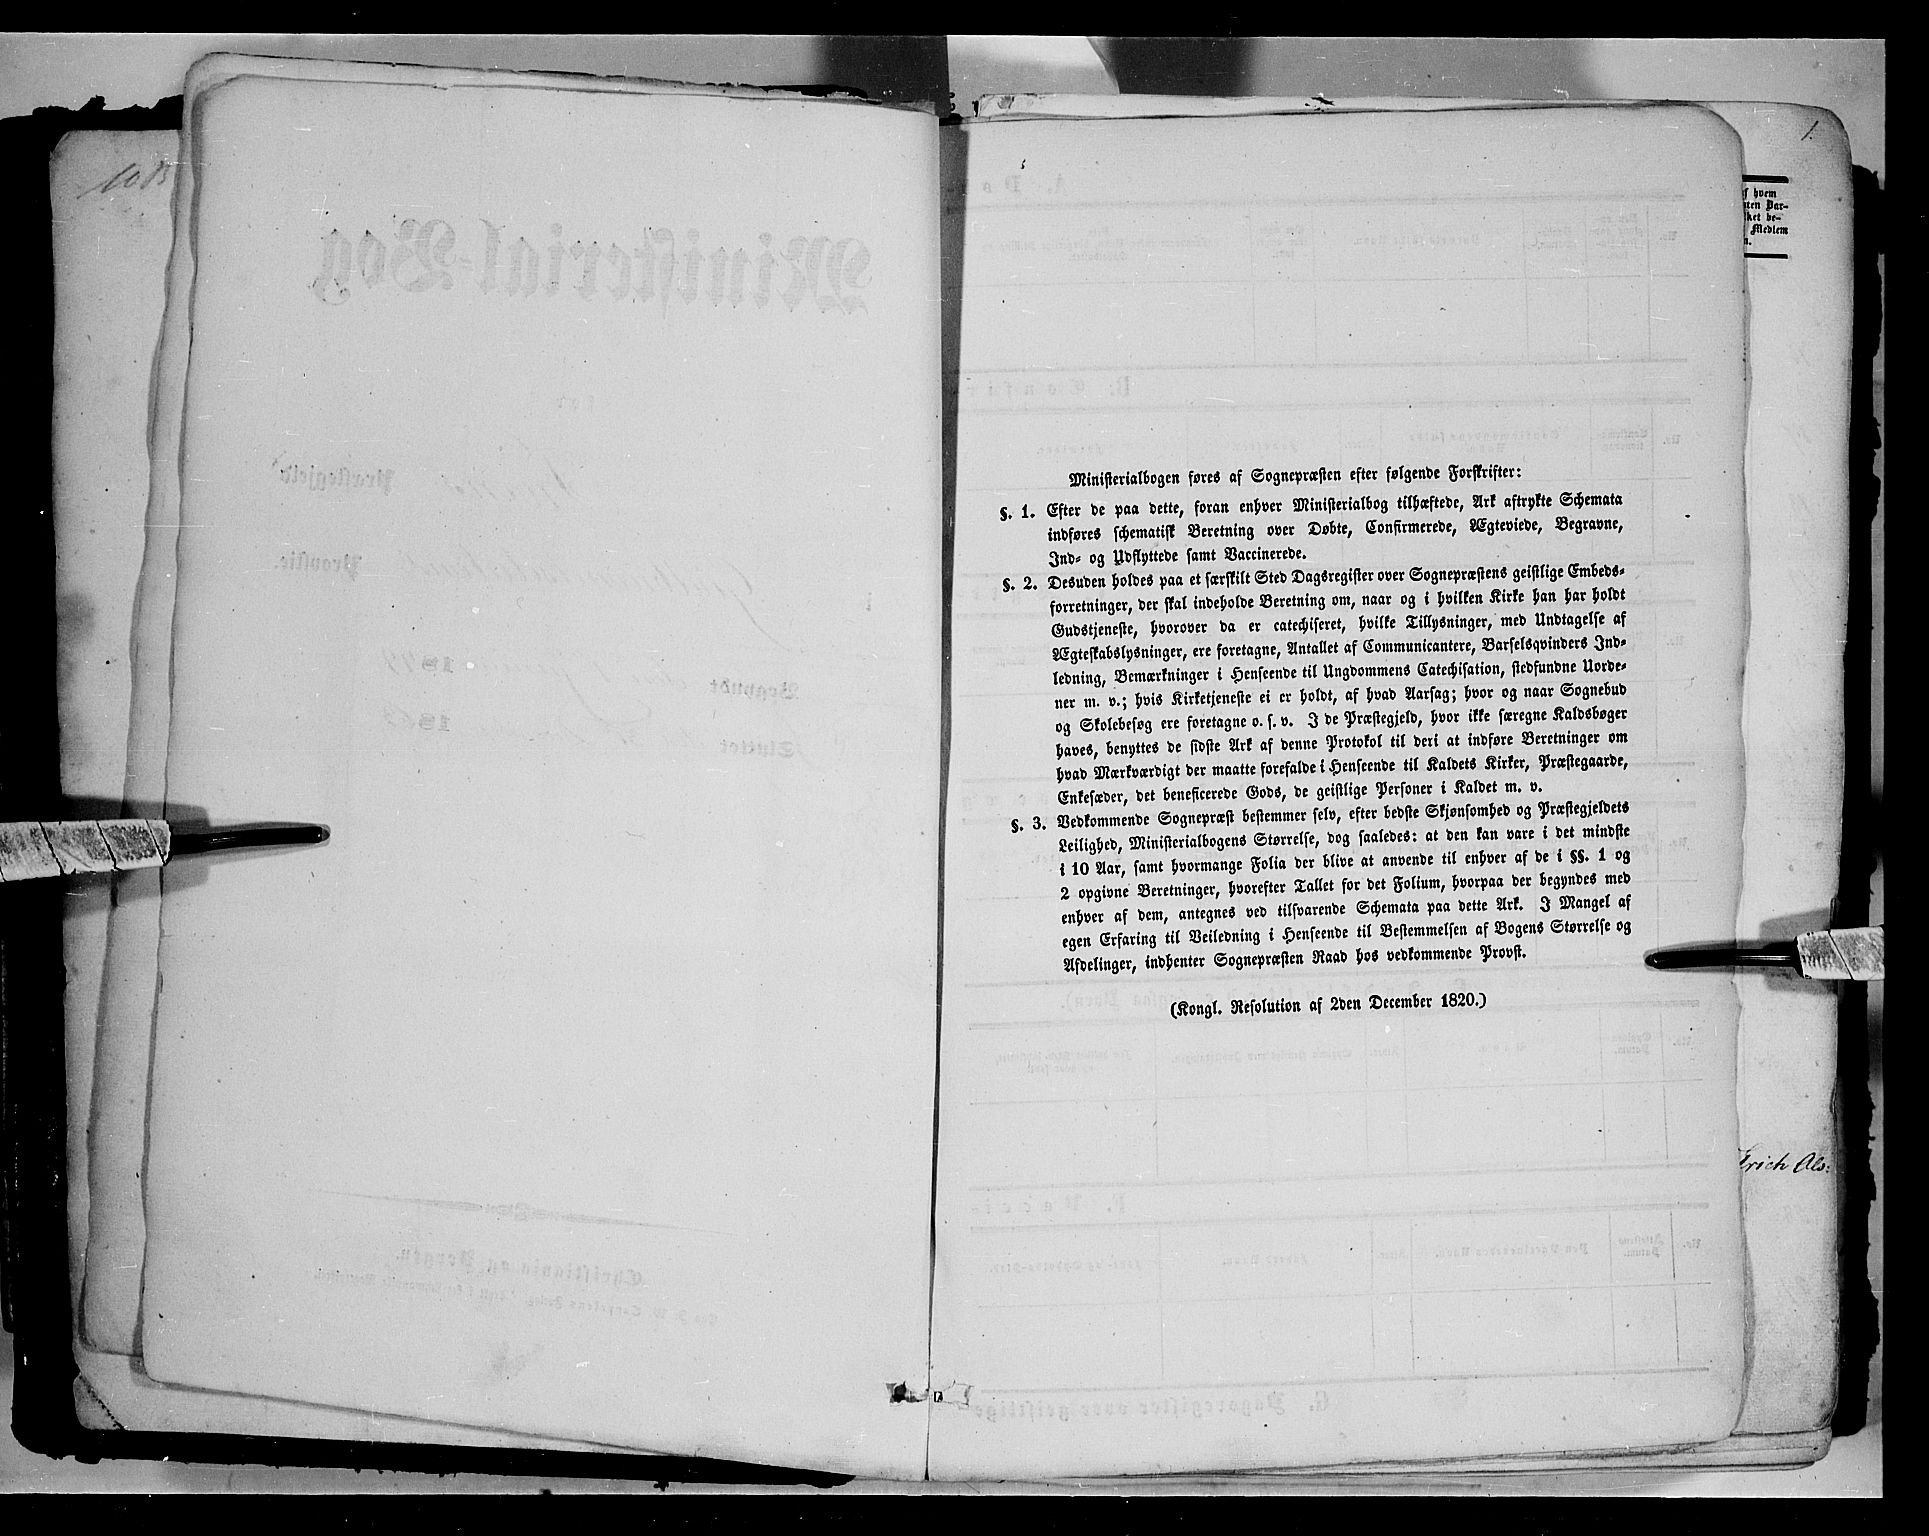 1.
af hvem
Medlem
Ministerialbogen føres af Sognepræsten efter følgende Forskrifter:
§. 1. Efter de paa dette, foran enhver Ministerialbog tilhæftede, Ark aftrykte Schemata
indføres schematisk Beretning over Døbte, Confirmerede, Ægteviede, Begravne,
Ind- og Udflyttede samt Vaccinerede.
§. 2. Desuden holdes paa et særskilt Sted Dagsregister over Sognepræstens geistlige Embeds-
forretninger, der skal indeholde Beretning om, naar og i hvilken Kirke han har holdt
Gudstjeneste, hvorover da er catechiseret, hvilke Tillysninger, med Undtagelse af
Ægteskabslysninger, ere foretagne, Antallet af Communicantere, Barselsqvinders Ind-
ledning, Bemærkninger i Henseende til Ungdommens Catechisation, stedfundne Uorde-
ner m. v.; hvis Kirketjeneste ei er holdt, af hvad Aarsag; hvor og naar Sognebud
og Skolebesøg ere foretagne o. s. v. I de Præstegjeld, hvor ikke særegne Kaldsbøger
haves, benyttes de sidste Ark af denne Protokol til deri at indføre Beretninger om
hvad Mærkværdigt der maatte forefalde i Henseende til Kaldets Kirker, Præstegaarde,
Enkesæder, det beneficerede Gods, de geistlige Personer i Kaldet m. v.
§. 3. Vedkommende Sognepræst bestemmer selv, efter bedste Skjønsomhed og Præstegjeldets
Leilighed, Ministerialbogens Størrelse, dog saaledes: at den kan vare i det mindste
i 10 Aar, samt hvormange Folia der blive at anvende til enhver af de i §§. 1 og
2 opgivne Beretninger, hvorefter Tallet for det Folium, hvorpaa der begyndes med
enhver af dem, antegnes ved tilsvarende Schemata paa dette Ark. I Mangel af
egen Erfaring til Veiledning i Henseende til Bestemmelsen af Bogens Størrelse og
Afdelinger, indhenter Sognepræsten Raad hos vedkommende Provst.
(Kongl. Resolution af 2den December 1820.)
Erich Ols: